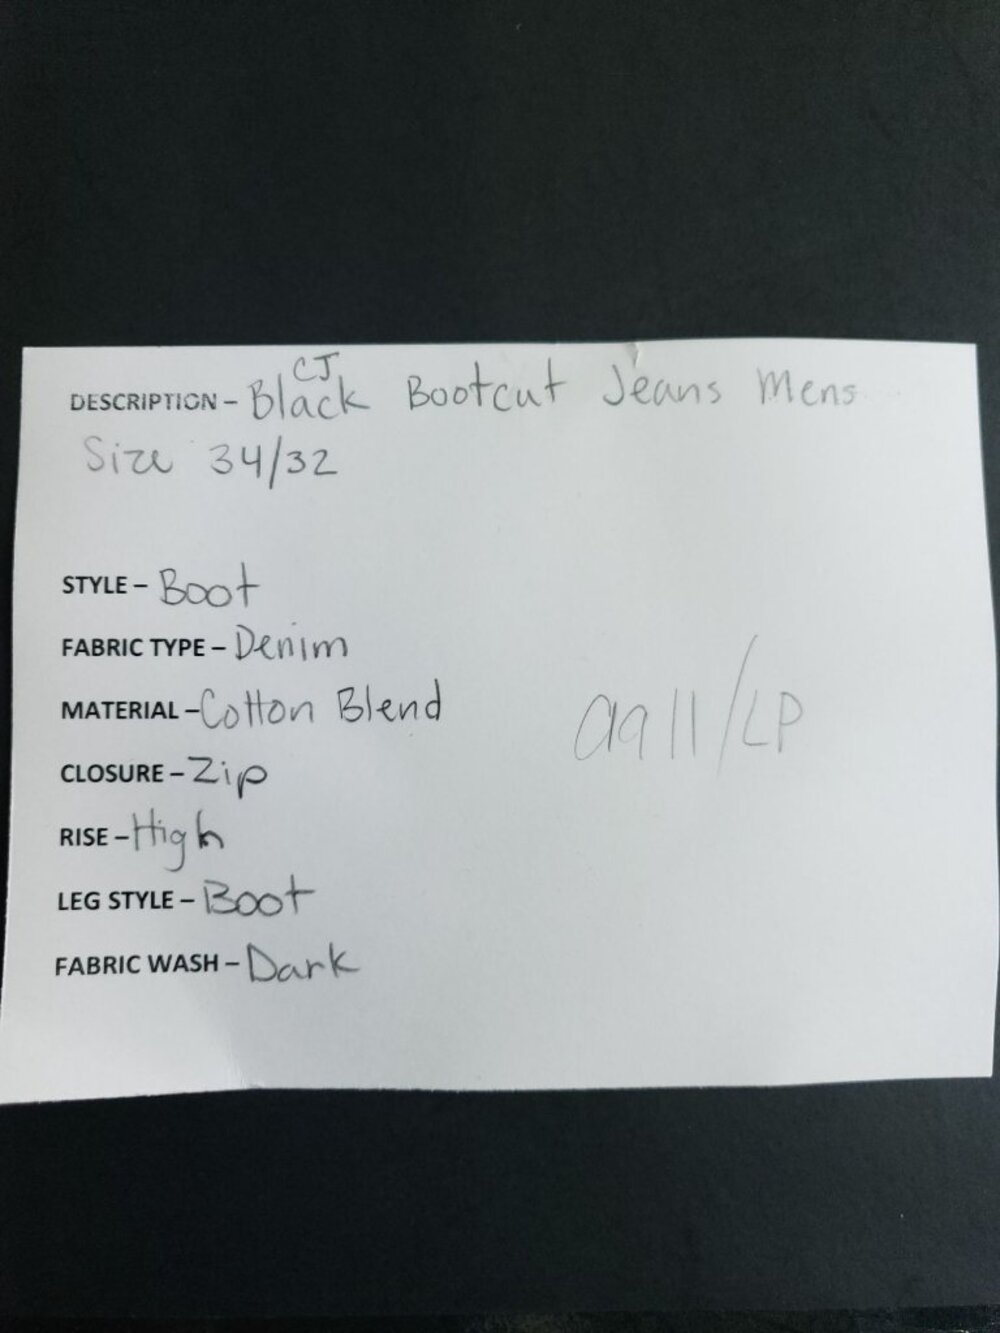 CJ
DESCRIPTION – Black Bootcut Jeans Mens
Size 34/32
STYLE – Boot
FABRIC TYPE – Denim
MATERIAL – Cotton Blend
aq11/LP
CLOSURE – Zip
RISE – High
LEG STYLE – Boot
FABRIC WASH – Dark